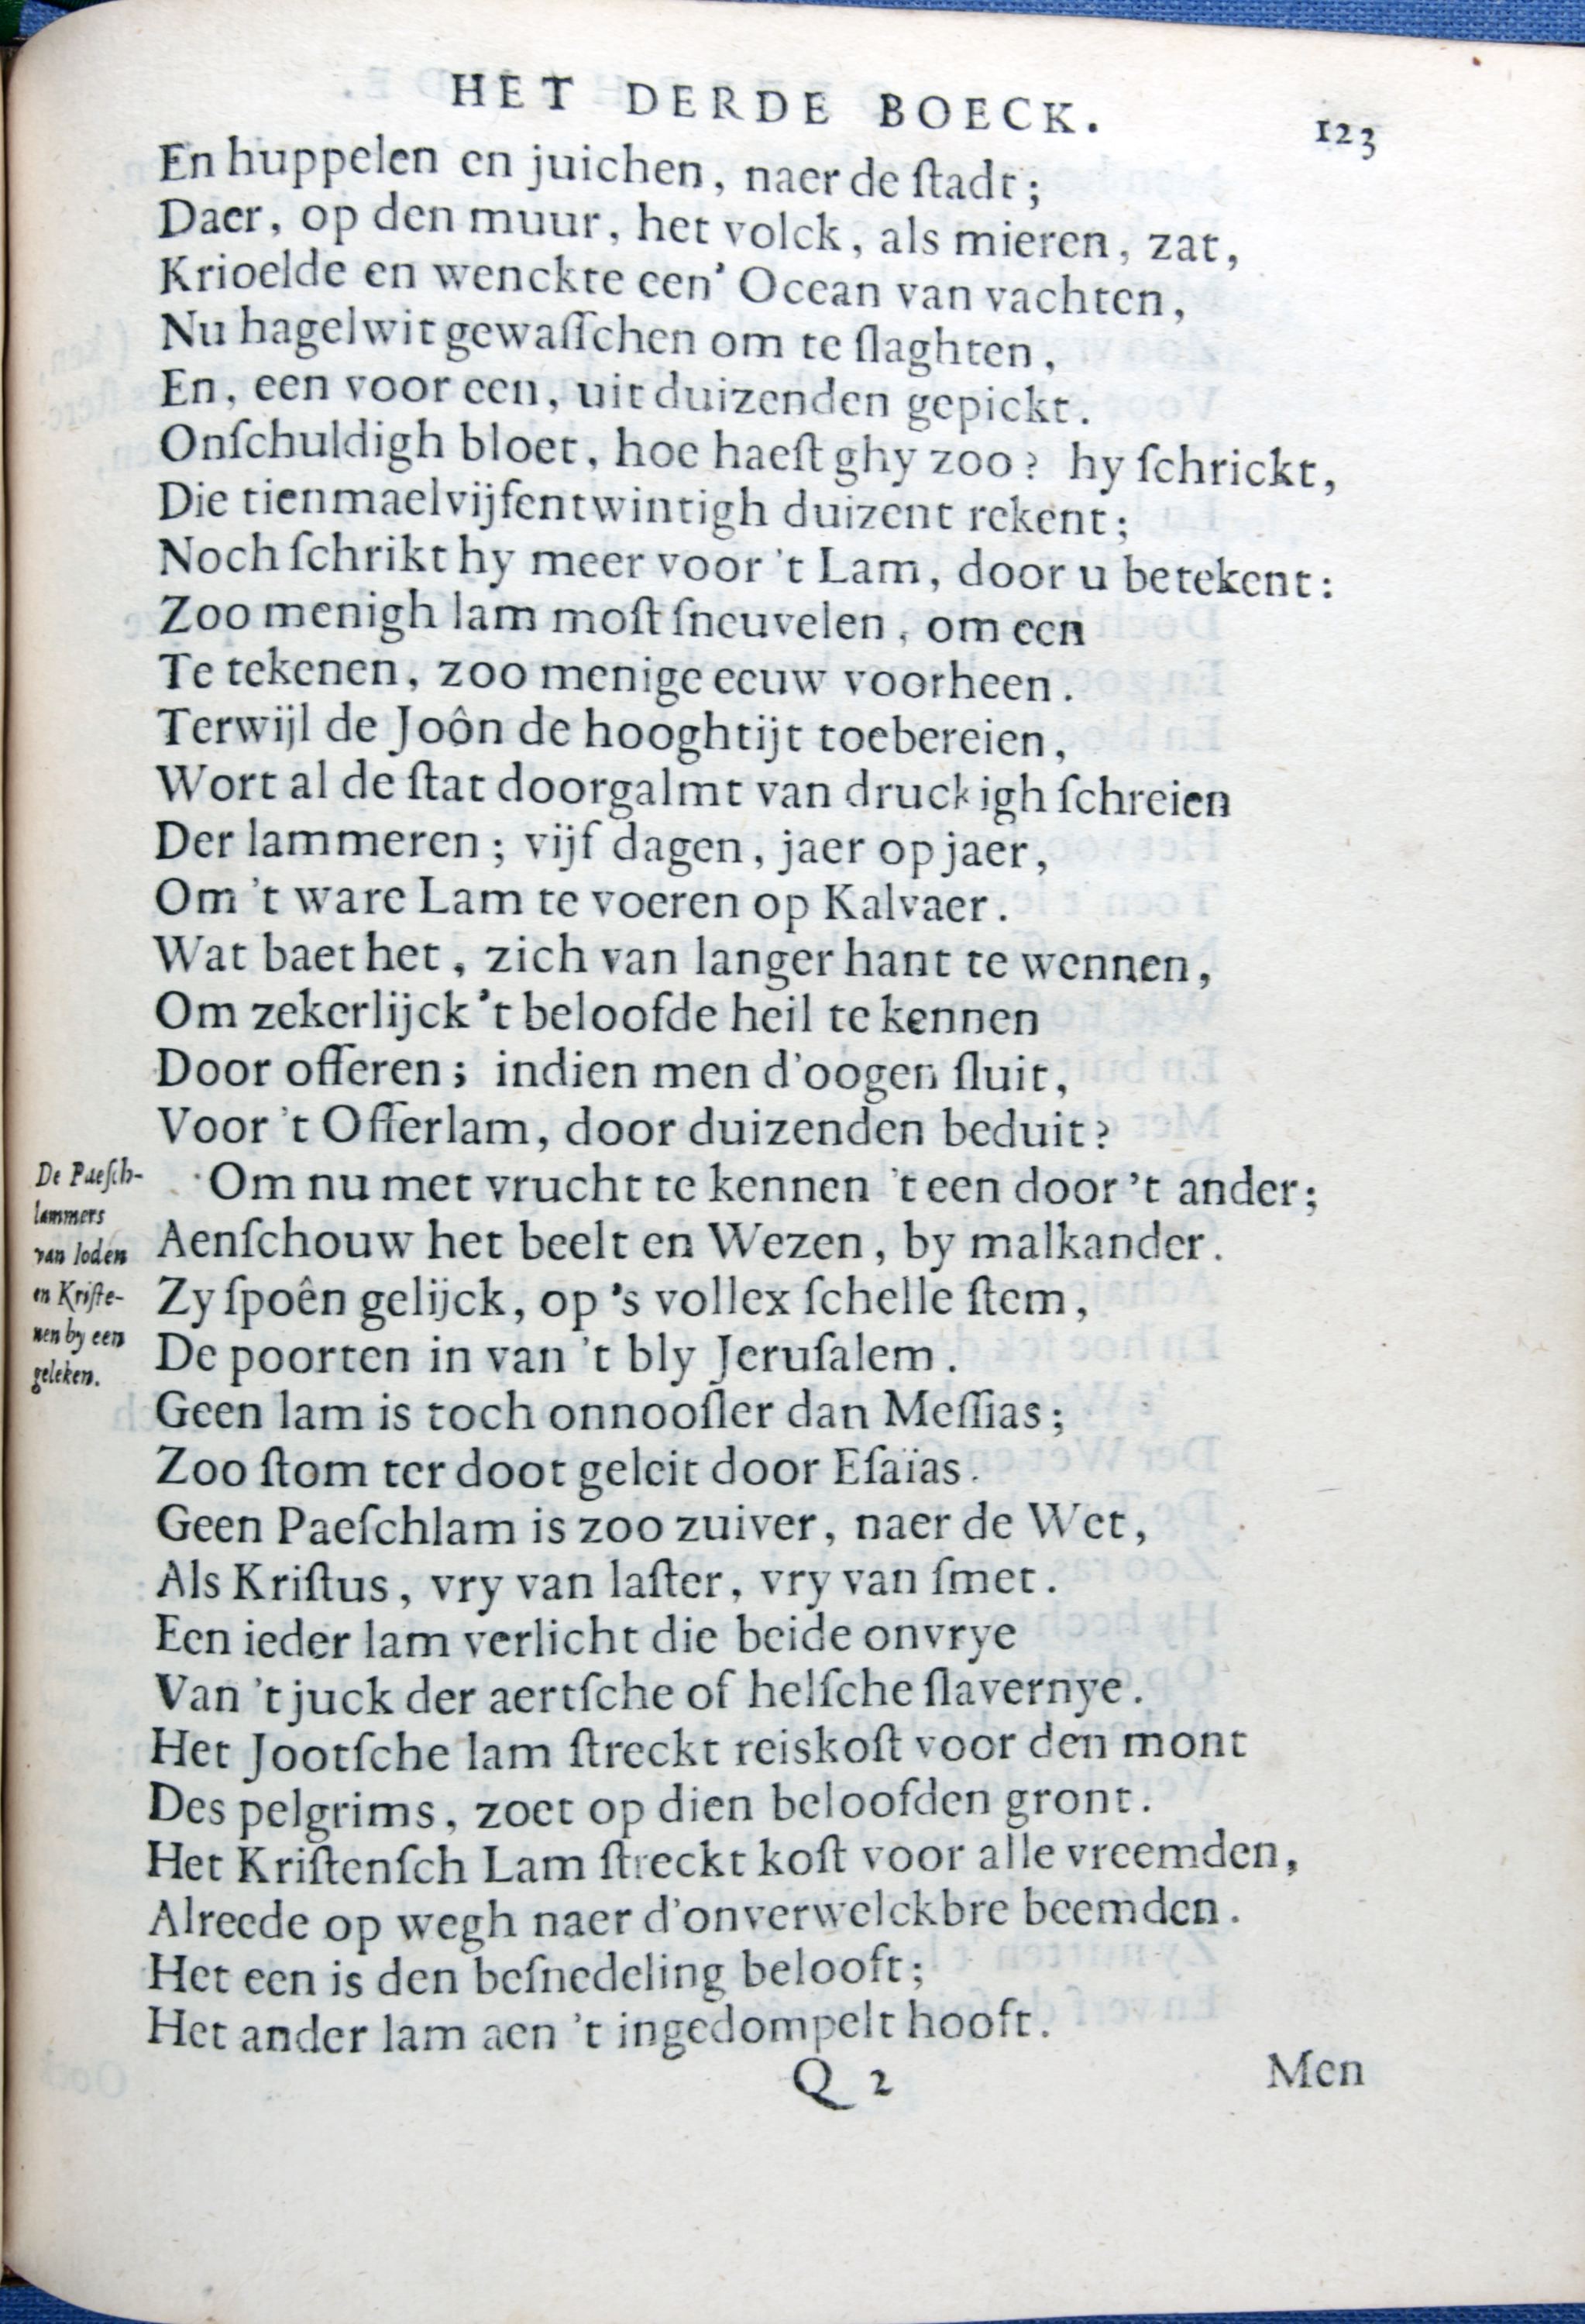 HET DERDE BOECK. 123
En huppelen en juichen, naer de ſtadt;
Daer, op den muur, het volck, als mieren, zat,
Krioelde en wenckte een' Ocean van vachten,
Nu hagelwit gewaſſchen om te ſlaghten,
En, een voor een, uit duizenden gepickt.
Onſchuldigh bloet, hoe haeſt ghy zoo? hy ſchrickt,
Die tienmaelvijfentwintigh duizent rekent;
Noch ſchrikt hy meer voor 't Lam, door u betekent:
Zoo menigh lam moſt ſneuvelen, om een
Te tekenen, zoo menige eeuw voorheen.
Terwijl de Joôn de hooghtijt toebereien,
Wort al de ſtat doorgalmt van druckigh ſchreien
Der lammeren; vijf dagen, jaer op jaer,
Om 't ware Lam te voeren op Kalvaer.
Wat baet het, zich van langer hant te wennen,
Om zekerlijck 't beloofde heil te kennen
Door offeren; indien men d'oogen ſluit,
Voor 't Offerlam, door duizenden beduit?
De Paeſch-
lammers
van Ioden
en Kriſte-
nen by een
geleken.
Om nu met vrucht te kennen 't een door 't ander;
Aenſchouw het beelt en Wezen, by malkander.
Zy ſpoên gelijck, op 's vollex ſchelle ſtem,
De poorten in van 't bly Jeruſalem.
Geen lam is toch onnooſler dan Meſſias;
Zoo ſtom ter doot geleit door Eſaïas.
Geen Paeſchlam is zoo zuiver, naer de Wet,
Als Kriſtus, vry van laſter, vry van ſmet.
Een ieder lam verlicht die beide onvrye
Van 't juck der aertſche of helſche ſlavernye.
Het Jootſche lam ſtreckt reiskoſt voor den mont
Des pelgrims, zoet op dien beloofden gront.
Het Kriſtenſch Lam ſtreckt koſt voor alle vreemden,
Alreede op wegh naer d'onverwelckbre beemden.
Het een is den beſnedeling belooft;
Het ander lam aen 't ingedompelt hooft.
Q 2 Men